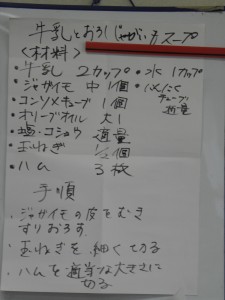 牛乳とおろしじゃがいもスープ
<材料>
・牛乳 2カップ ・水 1カップ
・ジャガイモ 中1個 ・にんにく
チューブ
適量
・コンソメキューブ 1個
・オリーブオイル 大1
・塩・コショウ 適量
・玉ねぎ 1/2個
・ハム 3枚
手順
・ジャガイモの皮をむき
すりおろす。
・玉ねぎを細く切る
・ハムを適当な大きさに
切る